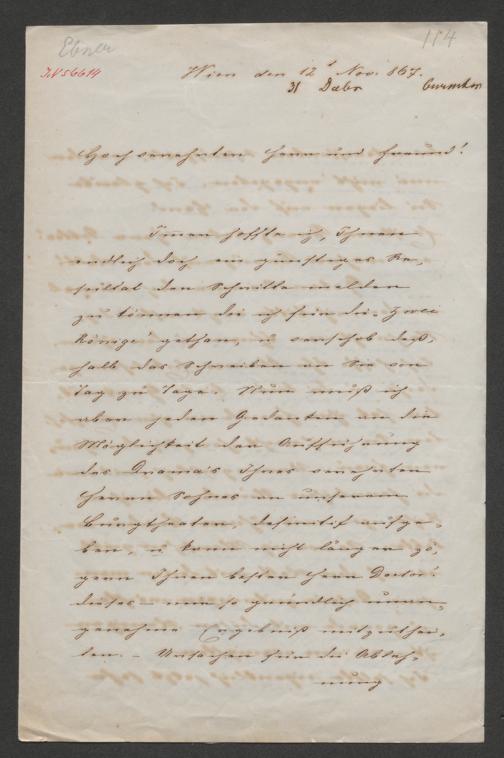 Ebner
154
IN 56614
Wien den 12t Nov. 867.
31 Dzbr
Hochverehrter Herr und Freund!
Immer hoffte ich, Ihnen
endlich doch ein günstiges Re-
sultat der Schritte melden
zu können die ich für die "Zwei
Könige" gethan, u verschob deß-
halb das Schreiben an Sie von
Tag zu Tage. Nun muß ich
aber jeden Gedanken an die
Möglichkeit der Aufführung
des Drama's Ihres verehrten
Herrn Sohnes an unserem
Burgtheater, definitif aufge-
ben, u kann nicht länger zö-
gern Ihnen bester Herr Doctor!
dieses – mir so gründlich unan-
genehme Ergebniß mitzuthei-
len. – Ursachen für die Ableh-
nung